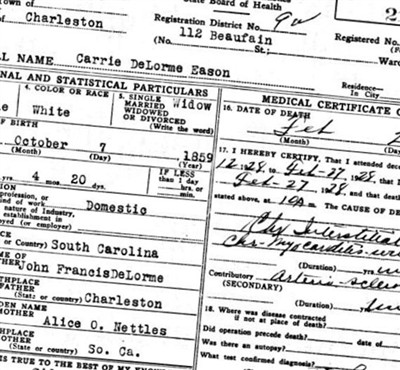 own of
Charleston
State Board of Health
Registration District No. 9a
Registered No.
112 Beaufain
(No. St.; Ward)
L NAME Carrie DeLorme Eason
Residence—
In City
NAL AND STATISTICAL PARTICULARS
4. COLOR OR RACE
White
5. SINGLE
MARRIED
WIDOWED
OR DIVORCED
(Write the word)
Widow
F BIRTH
October 7 1859
(Month) (Day) (Year)
yrs. 4 mos. 20 ds.
IF LESS
than 1 day
hrs. or
min.
ION
profession, or
ind of work Domestic
nature of Industry,
establishment in
yed (or employer)
CE
or Country) South Carolina
ME OF
THER John FrancisDeLorme
THPLACE
FATHER
(State or country) Charleston
DEN NAME
MOTHER Alice O. Nettles
THPLACE
MOTHER
(State or country) So. Ca.
IS TRUE TO THE BEST OF MY KNOW
MEDICAL CERTIFICATE O
16. DATE OF DEATH
Feb 2
(Month)
17. I HEREBY CERTIFY, That I attended dece
12 28, to Feb-27-'28, that I
Feb-27-'28, and that death
stated above, at THE CAUSE OF DEA
Chr Interstitial
Chr-Myocarditis
(Duration) yrs.
Contributory Arterio-scler
(SECONDARY)
(Duration)
18. Where was disease contracted
if not at place of death?
Did operation precede death? date of
Was there an autopsy?
What test confirmed diagnosis?